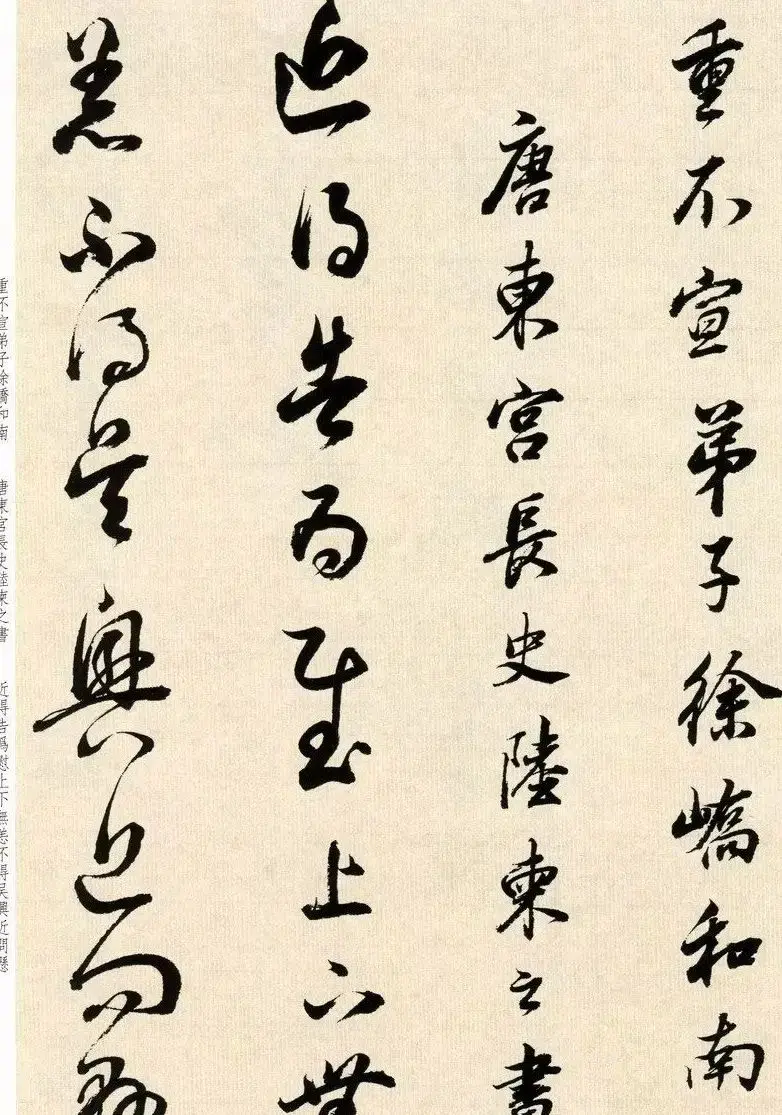 重不宣弟子徐嶠和南
唐東宮長史陸柬之書
近得告為慰上下無
恙不得吳興近問懸
重不宣弟子徐嶠和南 唐東宮長史陸柬之書 近得告爲慰上下無恙不得吳興近問懸